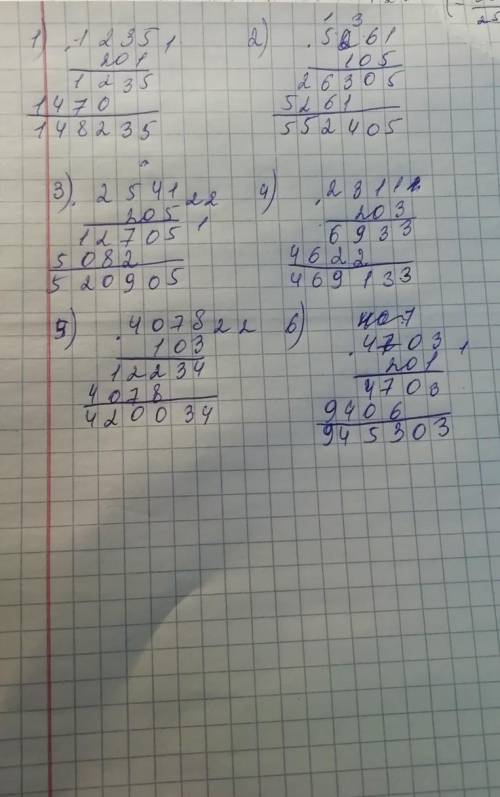 1) 1235 1
201
1235
1470
148235
2) 1 3
5261
105
26305
5261
552405
3) 2541 22
205
12705 1
5082
520905
4) 2311 1
203
6933
4622
469133
5) 4078 22
103
12234
4078
420034
6) 407
4703 1
201
4703
9406
945303